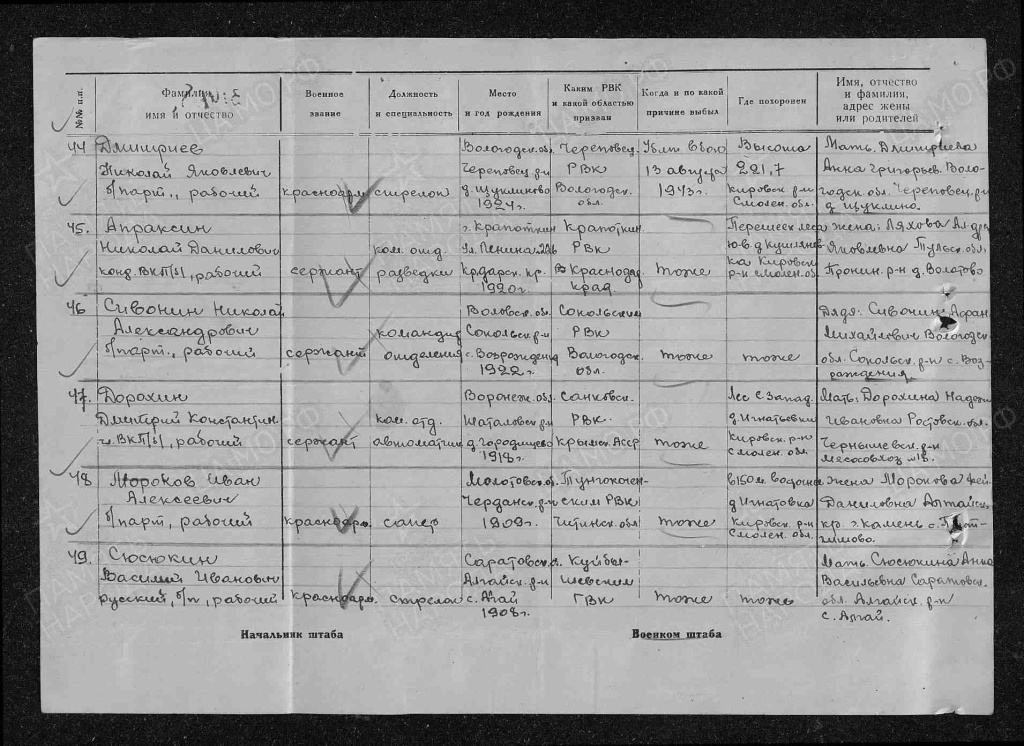 №№ п.п.
Фамилия,
имя и отчество
Военное
звание
Должность
и специальность
Место
и год рождения
Каким РВК
и какой областью
призван
Когда и по какой
причине выбыл
Где похоронен
Имя, отчество
и фамилия,
адрес жены
или родителей
44 Дмитриев
Николай Яковлевич
б/парт, рабочий
красноарм
стрелок
Вологодск. об.
Череповец. р-н
д. Шуклиново
1924 г.
Череповец.
РВК
Вологодск.
обл.
Убит в бою
13 августа
1943 г.
Высота
221,7
Кировск. р-н
Смолен. обл.
Мать. Дмитриева
Анна Григорьев. Воло-
годск. обл. Череповец. р-н
45. Апраксин
Николай Данилович
канд. ВКП/б/, рабочий
сержант
ком. отд.
разведки
г. Крапоткин
Ул. Ленина
Крдарск. кр.
1920 г.
Крапоткин.
РВК
Краснодар
край.
тоже
Перешеек
Кировск.
р-н Смолен. об.
жена: Ляхова
Яковлевна Тульск. обл.
р-н д. Волотово
46 Сивонин Николай
Александрович
б/парт., рабочий
сержант
командир
отделения
Сокольск. р-н
с. Возрождение
1922 г.
Сокольским
РВК
Вологодск.
обл.
тоже
тоже
Дядя: Сивонин
Михайлович Вологодск.
обл. Сокольск. р-н с. Воз-
рождения
47. Дорохин
Дмитрий Константин.
ч. ВКП/б/, рабочий
сержант
ком. отд.
автоматчик.
Воронеж. обл.
Шаталовск. р-н
д. Городищево
1918 г.
РВК.
Крымск. Асср
тоже
Лес С. Запад.
д. Игнатьевки
Кировск. р-н
Смолен. обл.
Мать: Дорохина
Ивановна Ростовск. обл.
Чернышевск. р-н
48 Мороков Иван
Алексеевич
б/парт, рабочий
красноарм.
сапер
Молотовск. об.
Чердынск. р-н
1909 г.
Тунгокочен-
ским РВК
Читинск. обл
тоже
в 150 м.
д. Игнатовка
Кировск. р-н
Смолен. обл.
жена Морокова
Даниловна Алтайск.
кр. г. Камень
49. Сюсюкин
Василий Иванович
русский, б/п, рабочий
Краснодарм.
стрелок
Саратовск.
Алгайск. р-н
с. Алгай
1908 г.
Куйбы-
шевским
ГВК
тоже
тоже
Мать Сюсюкина Анна
Васильевна Саратовск.
обл. Алгайск. р-н
с. Алгай.
Начальник штаба
Военком штаба